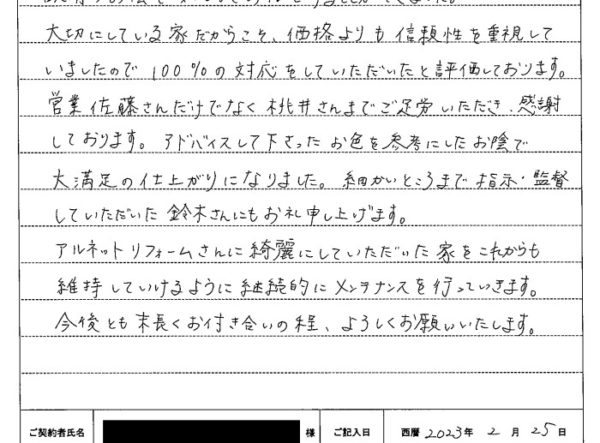 大切にしている家だからこそ、価格よりも信頼性を重視して
いましたので100%の対応をしていただいたと評価しております。
営業佐藤さんだけでなく桃井さんまでご足労いただき、感謝
しております。アドバイスして下さったお色を参考にしたお陰で
大満足の仕上がりになりました。細かいところまで指示・監督
していただいた鈴木さんにもお礼申し上げます。
アルネットリフォームさんに綺麗にしていただいた家をこれからも
維持していけるように継続的にメンテナンスを行っていきます。
今後とも末長くお付き合いの程、よろしくお願いいたします。
ご契約者氏名 様 ご記入日 西暦 2023年 2月 25日